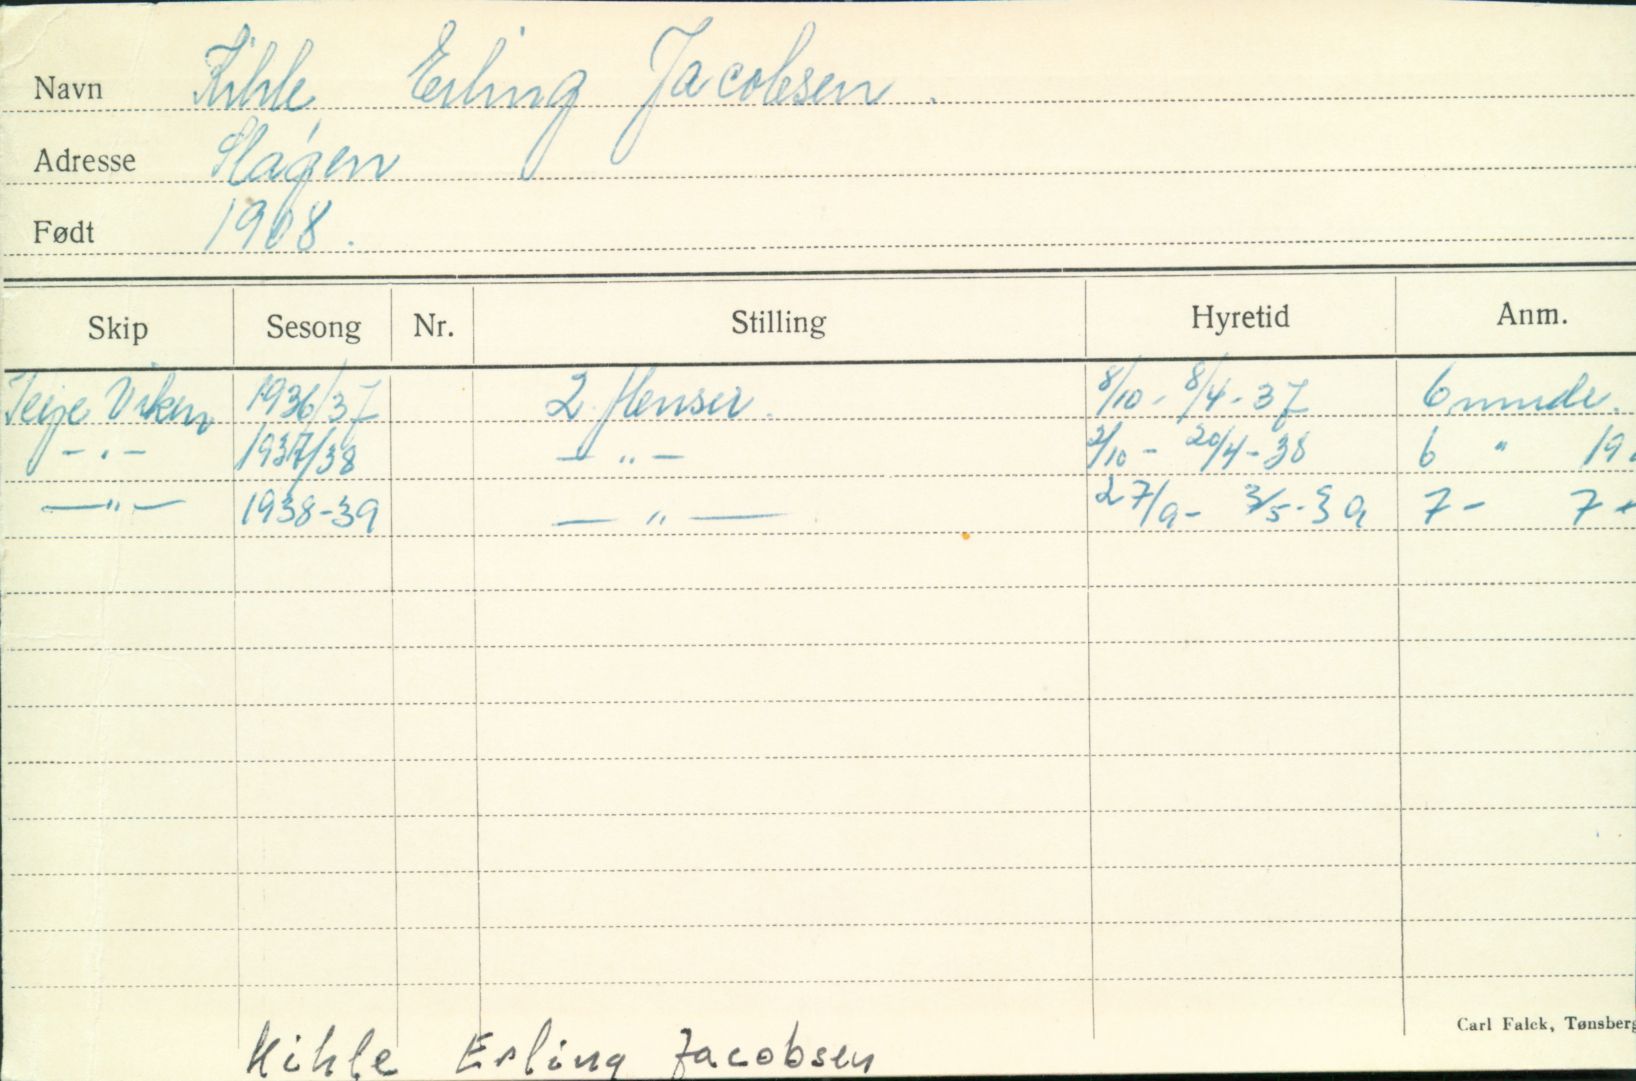 Navn Kihle Erling Jacobsen.
Adresse Slagen
Født 1908.
Skip Sesong Nr. Stilling Hyretid Anm.
Terje Viken 1936/37 2 flenser. 8/10 - 8/4 - 37 6 mnde.
- " - 1937/38 - " - 2/10 - 20/4 - 38 6 " 19
- " - 1938-39 - " - 27/9 - 3/5 - 39 7 - 7
Carl Falck, Tønsberg
Kihle Erling Jacobsen